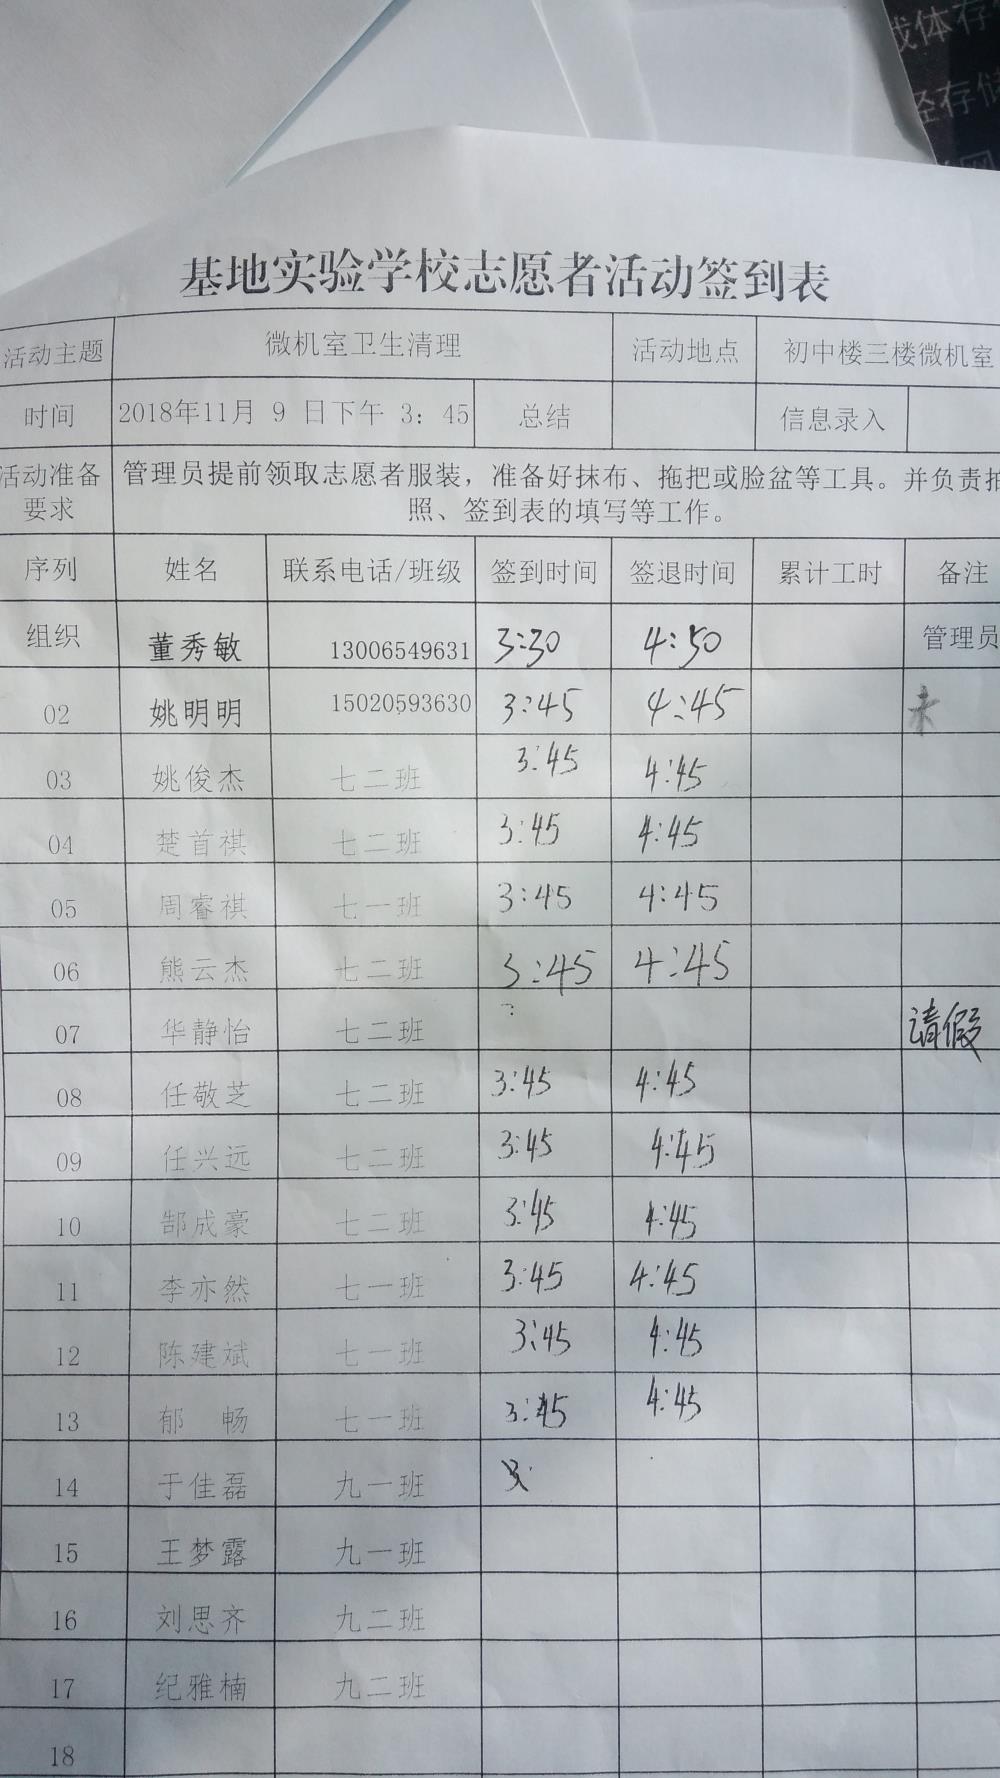 载体存
径存储
基地实验学校志愿者活动签到表
活动主题 微机室卫生清理 活动地点 初中楼三楼微机室
时间 2018年11月 9 日下午 3: 45 总结 信息录入
活动准备要求 管理员提前领取志愿者服装，准备好抹布、拖把或脸盆等工具。并负责拍
照、签到表的填写等工作。
序列 姓名 联系电话/班级 签到时间 签退时间 累计工时 备注
组织 董秀敏 13006549631 3:30 4:50 管理员
02 姚明明 15020593630 3:45 4:45 未
03 姚俊杰 七二班 3:45 4:45
04 楚首祺 七二班 3:45 4:45
05 周睿祺 七一班 3:45 4:45
06 熊云杰 七二班 3:45 4:45
07 华静怡 七二班 请假
08 任敬芝 七二班 3:45 4:45
09 任兴远 七二班 3:45 4:45
10 郜成豪 七二班 3:45 4:45
11 李亦然 七一班 3:45 4:45
12 陈建斌 七一班 3:45 4:45
13 郁 畅 七一班 3:45 4:45
14 于佳磊 九一班
15 王梦露 九一班
16 刘思齐 九二班
17 纪雅楠 九二班
18